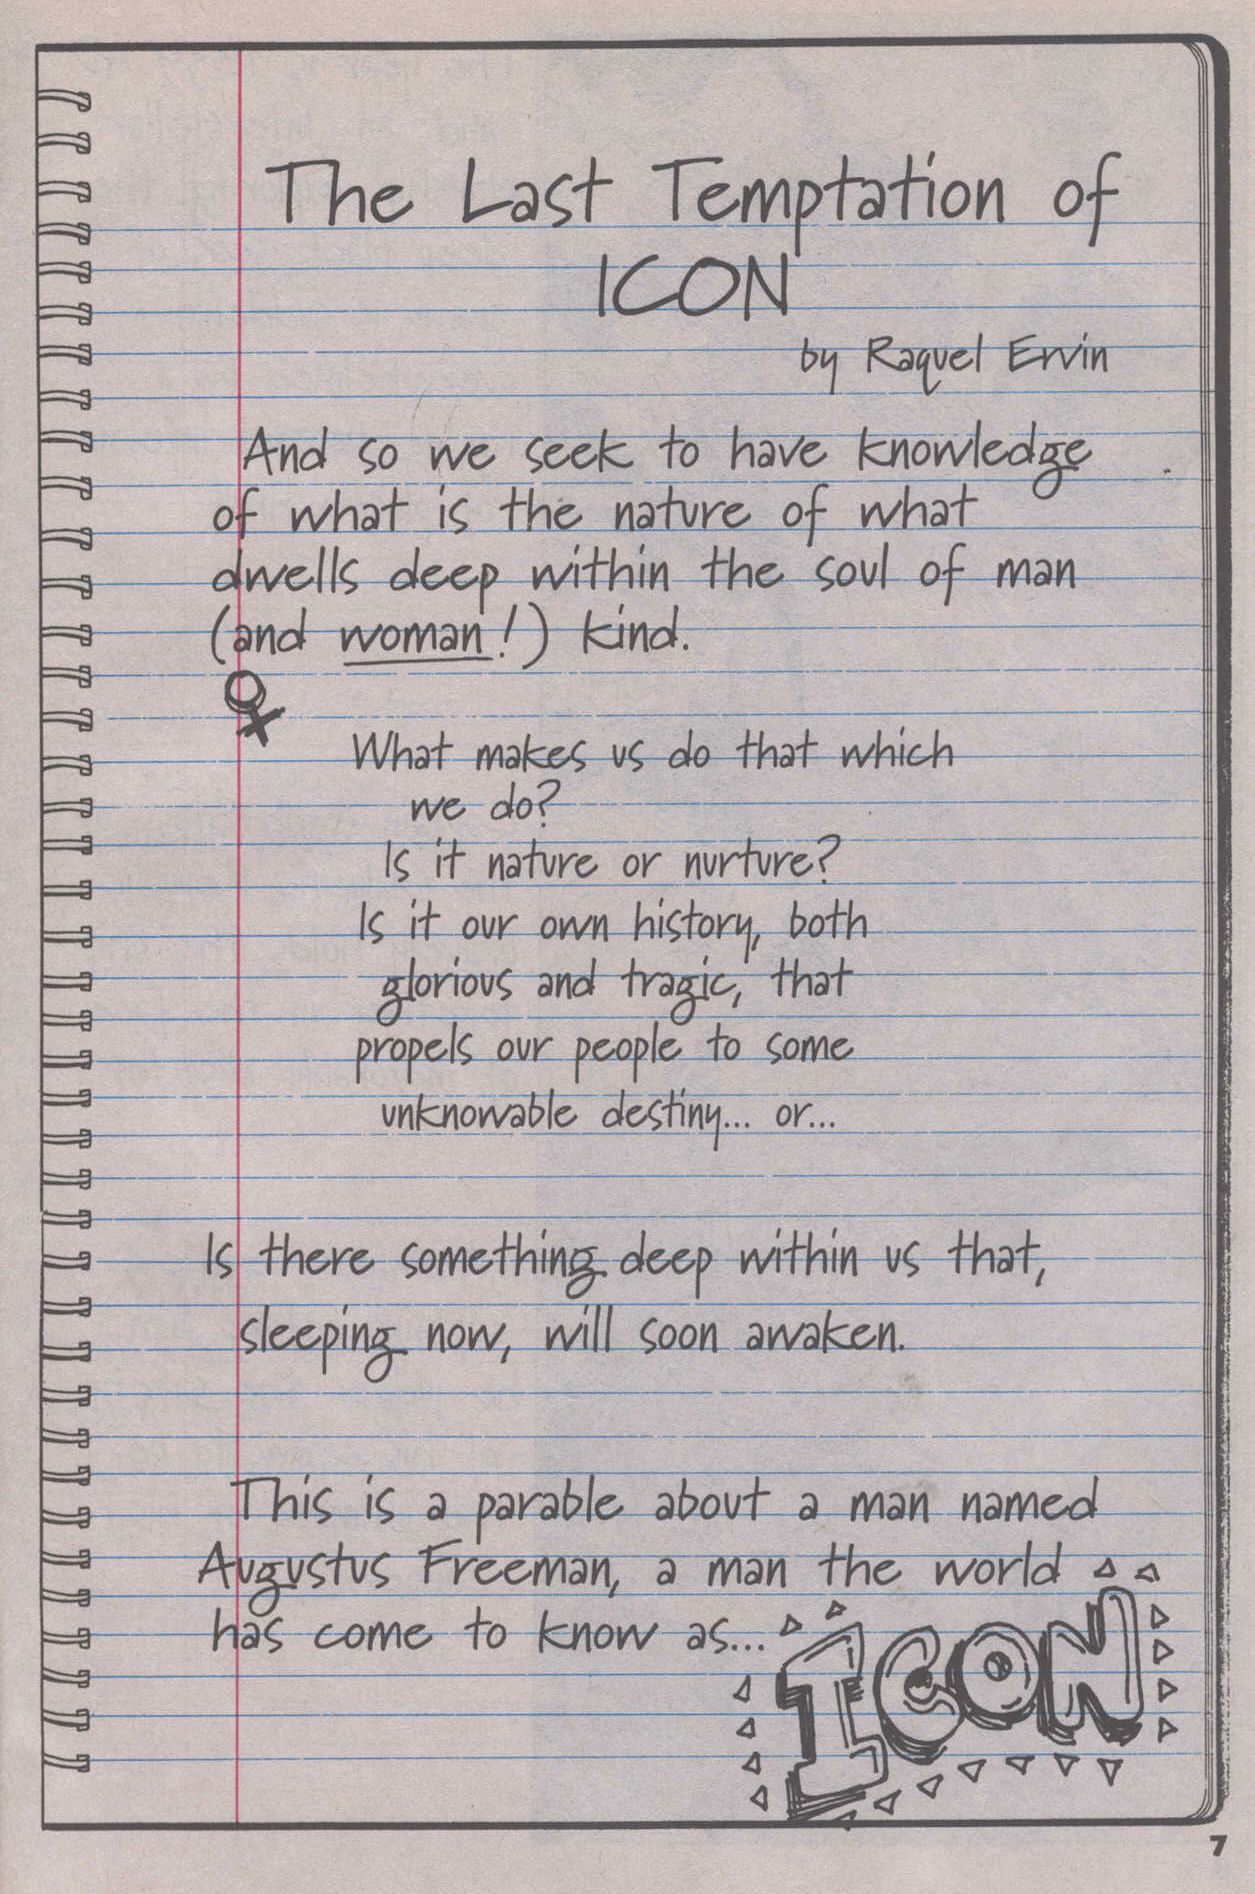 The Last Temptation of
ICON
by Raquel Ervin
And so we seek to have knowledge
of what is the nature of what
dwells deep within the soul of man
(and woman!) kind.
What makes us do that which
we do?
Is it nature or nurture?
Is it our own history, both
glorious and tragic, that
propels our people to some
unknowable destiny... or...
Is there something deep within us that,
sleeping now, will soon awaken.
This is a parable about a man named
Augustus Freeman, a man the world
has come to know as...
ICON
7